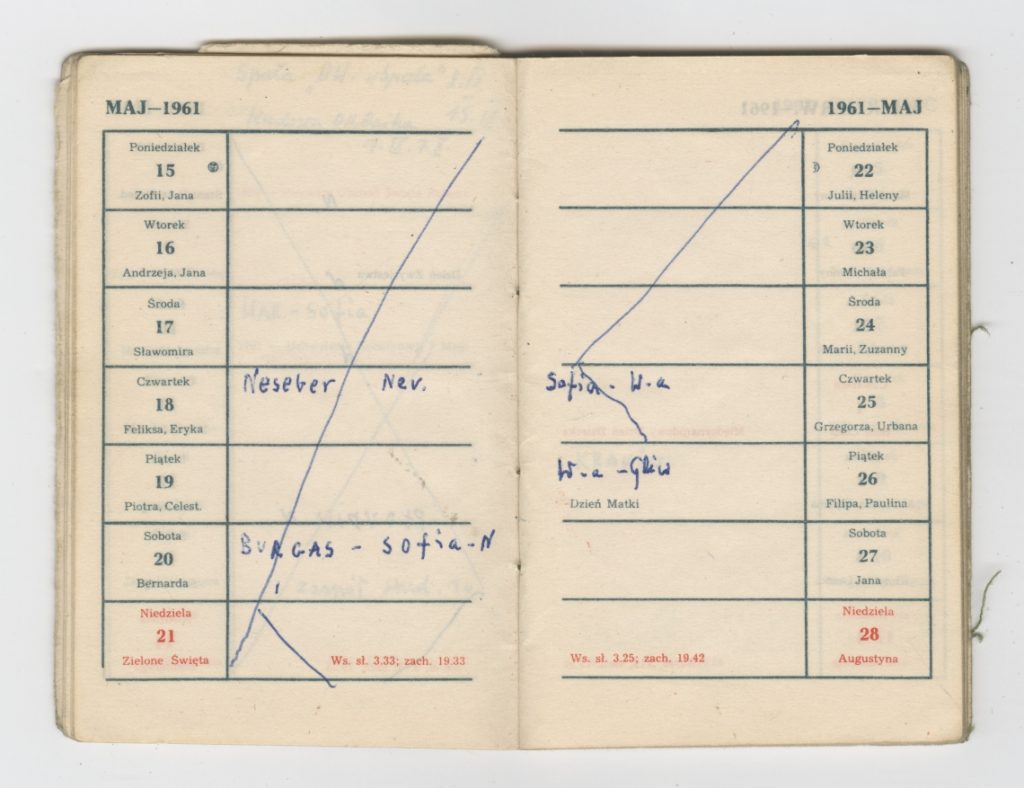 MAJ—1961
Poniedziałek
15
Zofii, Jana
Wtorek
16
Andrzeja, Jana
Środa
17
Sławomira
Czwartek
18
Feliksa, Eryka
Neseber Nev.
Piątek
19
Piotra, Celest.
Sobota
20
Bernarda
BURGAS - SOfia-N
Niedziela
21
Zielone Święta
Ws. sł. 3.33; zach. 19.33
1961—MAJ
Poniedziałek
22
Julii, Heleny
Wtorek
23
Michała
Środa
24
Marii, Zuzanny
Czwartek
25
Grzegorza, Urbana
Sofia - W-a
Piątek
26
Filipa, Paulina
W-a - Gliw
Dzień Matki
Sobota
27
Jana
Niedziela
28
Augustyna
Ws. sł. 3.25; zach. 19.42